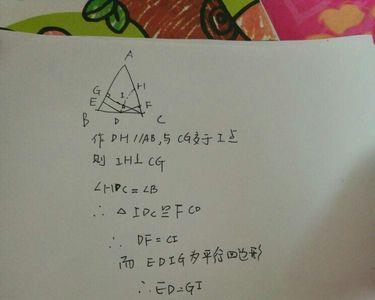 A
G
H
E
I
F
B
D
C
作 DH//AB,与 CG交于 I点
则 IH⊥CG
∠HDC=∠B
∴ △IDC≌FCD
∴ DF=CI
而 EDIG为平行四边形
∴ED=GI